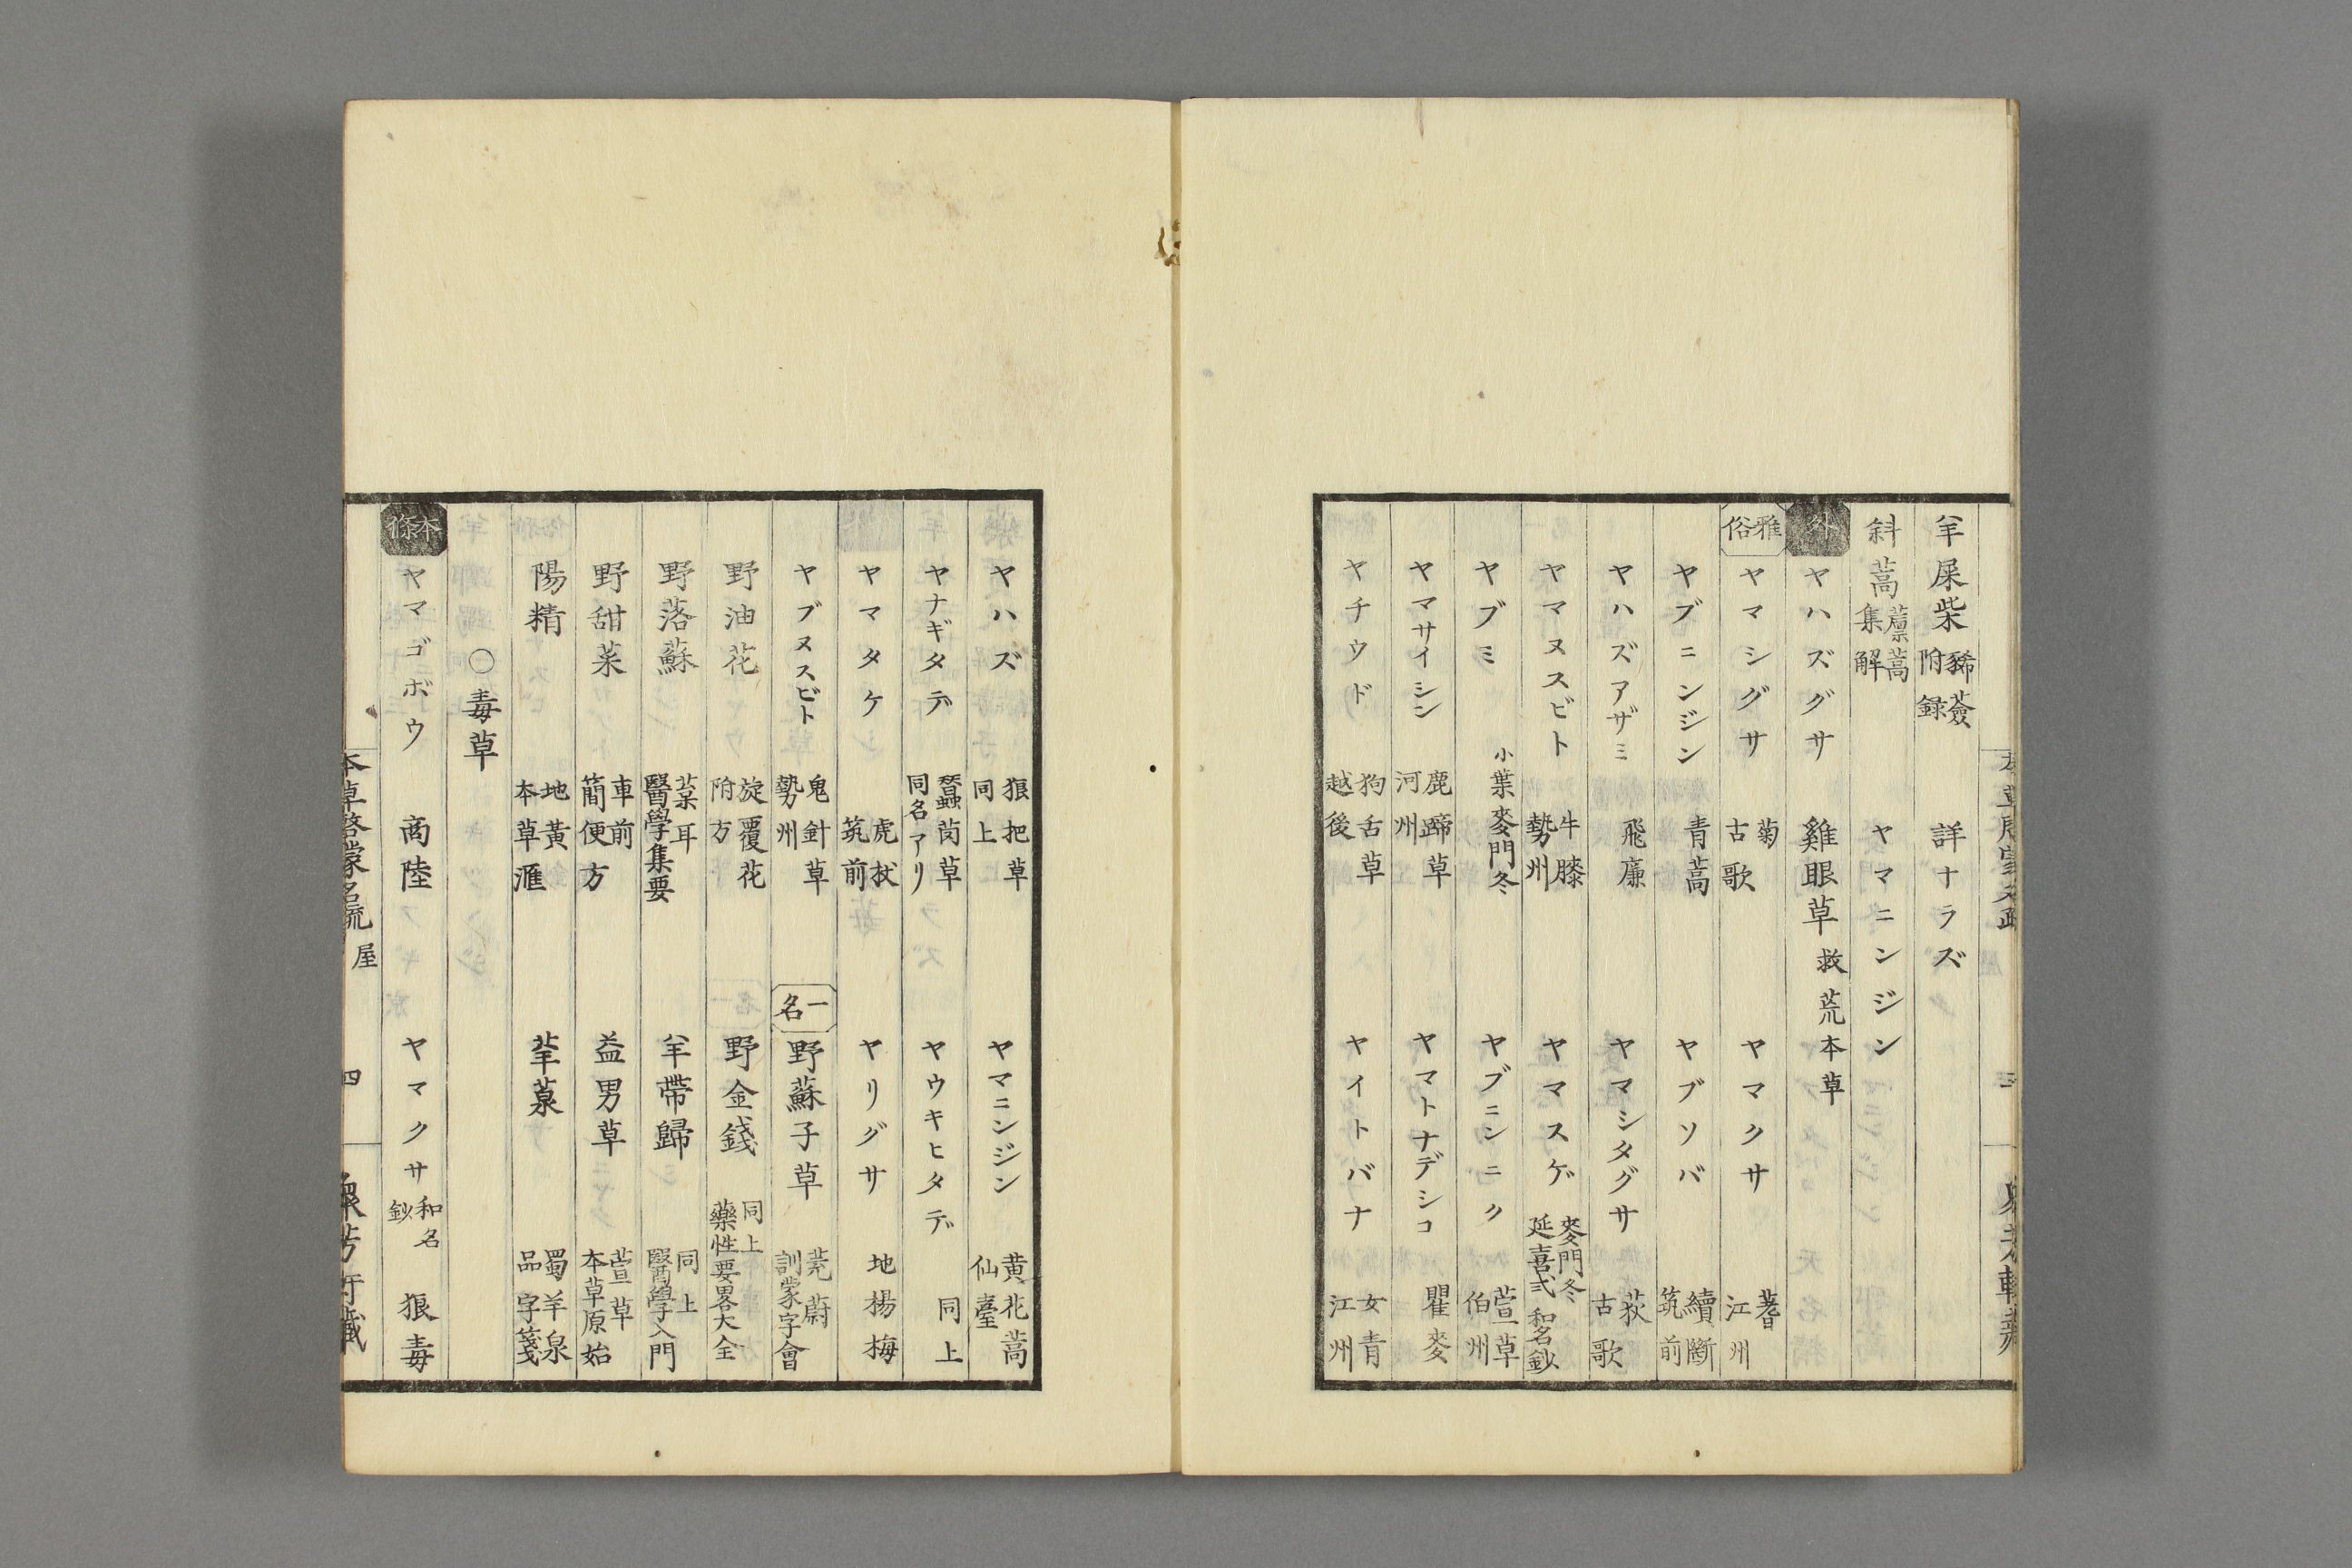 羊屎柴 豨薟附録 詳ナラズ
斜蒿 藁蒿集解 ヤマニンジン
外 ヤハズグサ 雞眼草 救荒本草
雅俗 ヤマシグサ 菊古歌 ヤマクサ 蓍江州
ヤブニンジン 青蒿 ヤブソバ 續斷筑前
ヤハズアザミ 飛廉 ヤマシタグサ 荻古歌
ヤマヌスビト 牛膝勢州 ヤマスゲ 麥門冬延喜式和名鈔
ヤブミ 小葉麥門冬 ヤブニンニク 萱草伯州
ヤマサイシン 鹿蹄草河州 ヤマトナデシコ 瞿麥
ヤチウド 狗舌草越後 ヤイトバナ 女青江州
ヤハズ 狼把草同上 ヤマニンジン 黄花蒿仙臺
ヤナギタデ 蠶茵草同名アリ ヤウキヒタデ 同上
ヤマタケ 虎杖筑前 ヤリグサ 地楊梅
ヤブヌスビト 鬼針草勢州 一名 野蘇子草 茺蔚訓蒙字會
野油花 旋覆花附方 野金錢 同上藥性要畧大全
野落蘇 葈耳醫學集要 羊帶歸 同上醫學入門
野甜菜 車前簡便方 益男草 萱草本草原始
陽精 地黃本草滙 羊蒝 蜀羊泉品字箋
〇毒草
本條 ヤマゴボウ 商陸 ヤマクサ 和名鈔 狼毒
本草啓蒙名疏 屋 四 衆芳軒藏